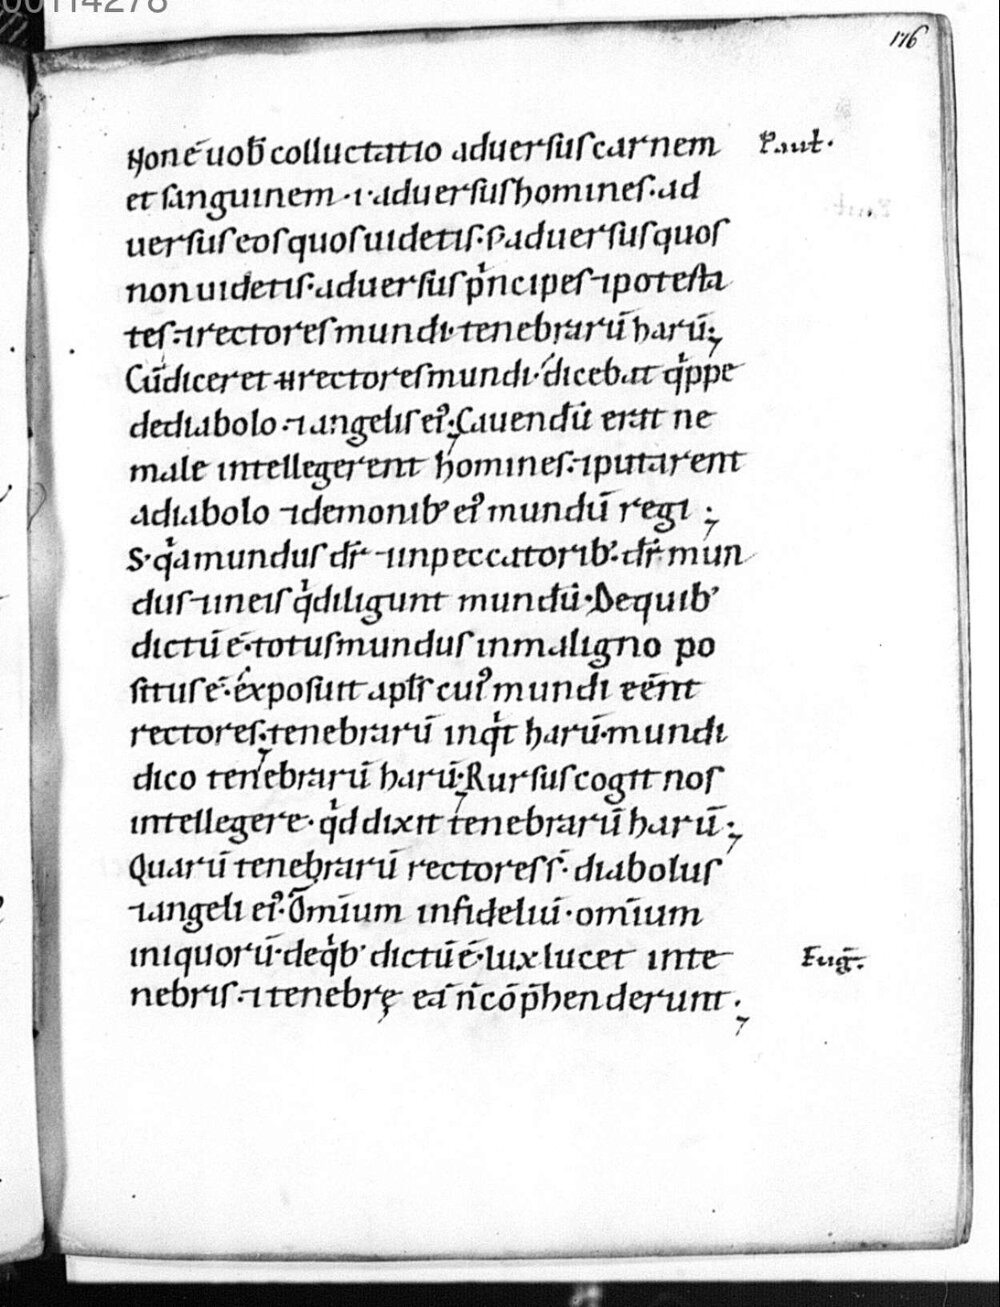 00114278
176
Non ē uob̄ colluctatio aduersus carnem Paul·
et sanguinem·⁊ aduersus homines·ad
uersus eos quos uidetis·s; aduersus quos
non uidetis·aduersus pͥncipes ⁊ potesta
tes·⁊ rectores mundi·tenebrarū harū;
Cū diceret ⁊ rectores mundi·dicebat qͥppe
de diabolo·⁊ angelis ei᷒; Cauendū erat ne
male intellegerent homines·⁊ putarent
a diabolo ⁊ demonib᷒ ei᷒ mundū regi;
S· qͥa mundus dr̄ ⁊ in peccatorib᷒·dr̄ mun
dus ⁊ in eis qͥ diligunt mundū·De quib᷒
dictū ē·totus mundus in maligno po
situs ē·exposuit apl̄s cui᷒ mundi eēnt
rectores; tenebrarū inqͥt harū·mundi
dico tenebrarū harū; Rursus cogit nos
intellegere·qͥd dixit tenebrarū harū;
Quarū tenebrarū rectores s̄·diabolus
⁊ angeli ei᷒·Om̄ium infideliū·om̄ium
iniquorū·de qͥb᷒ dictū ē·lux lucet in te Euḡ·
nebris·⁊ tenebrę eā n̄ cōp̄henderunt;